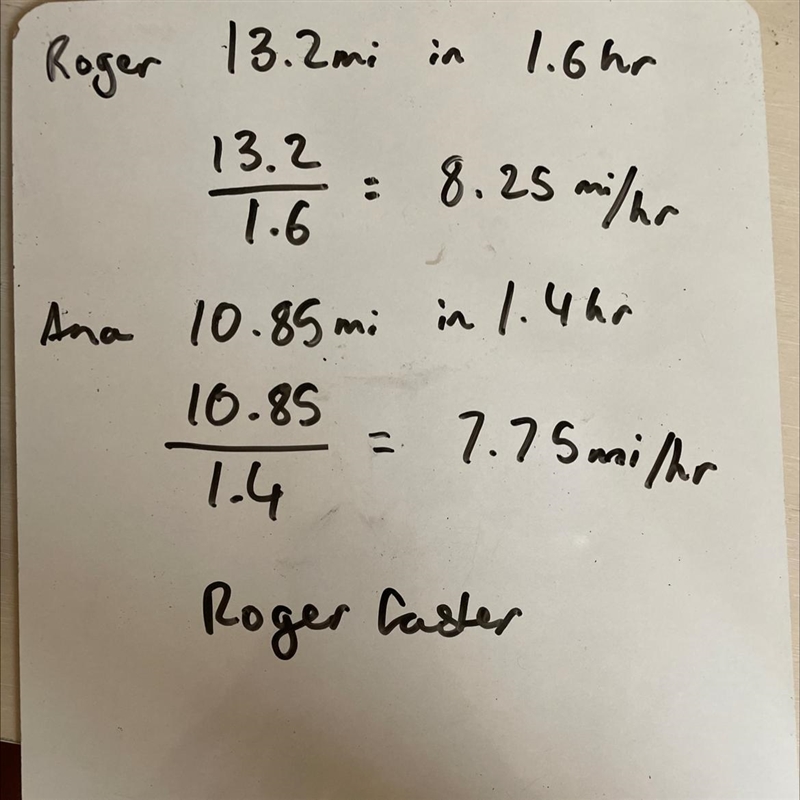 Roger 13.2mi in 1.6hr
13.2
1.6 = 8.25 mi/hr
Ana 10.85mi in 1.4hr
10.85
1.4 = 7.75mi/hr
Roger faster